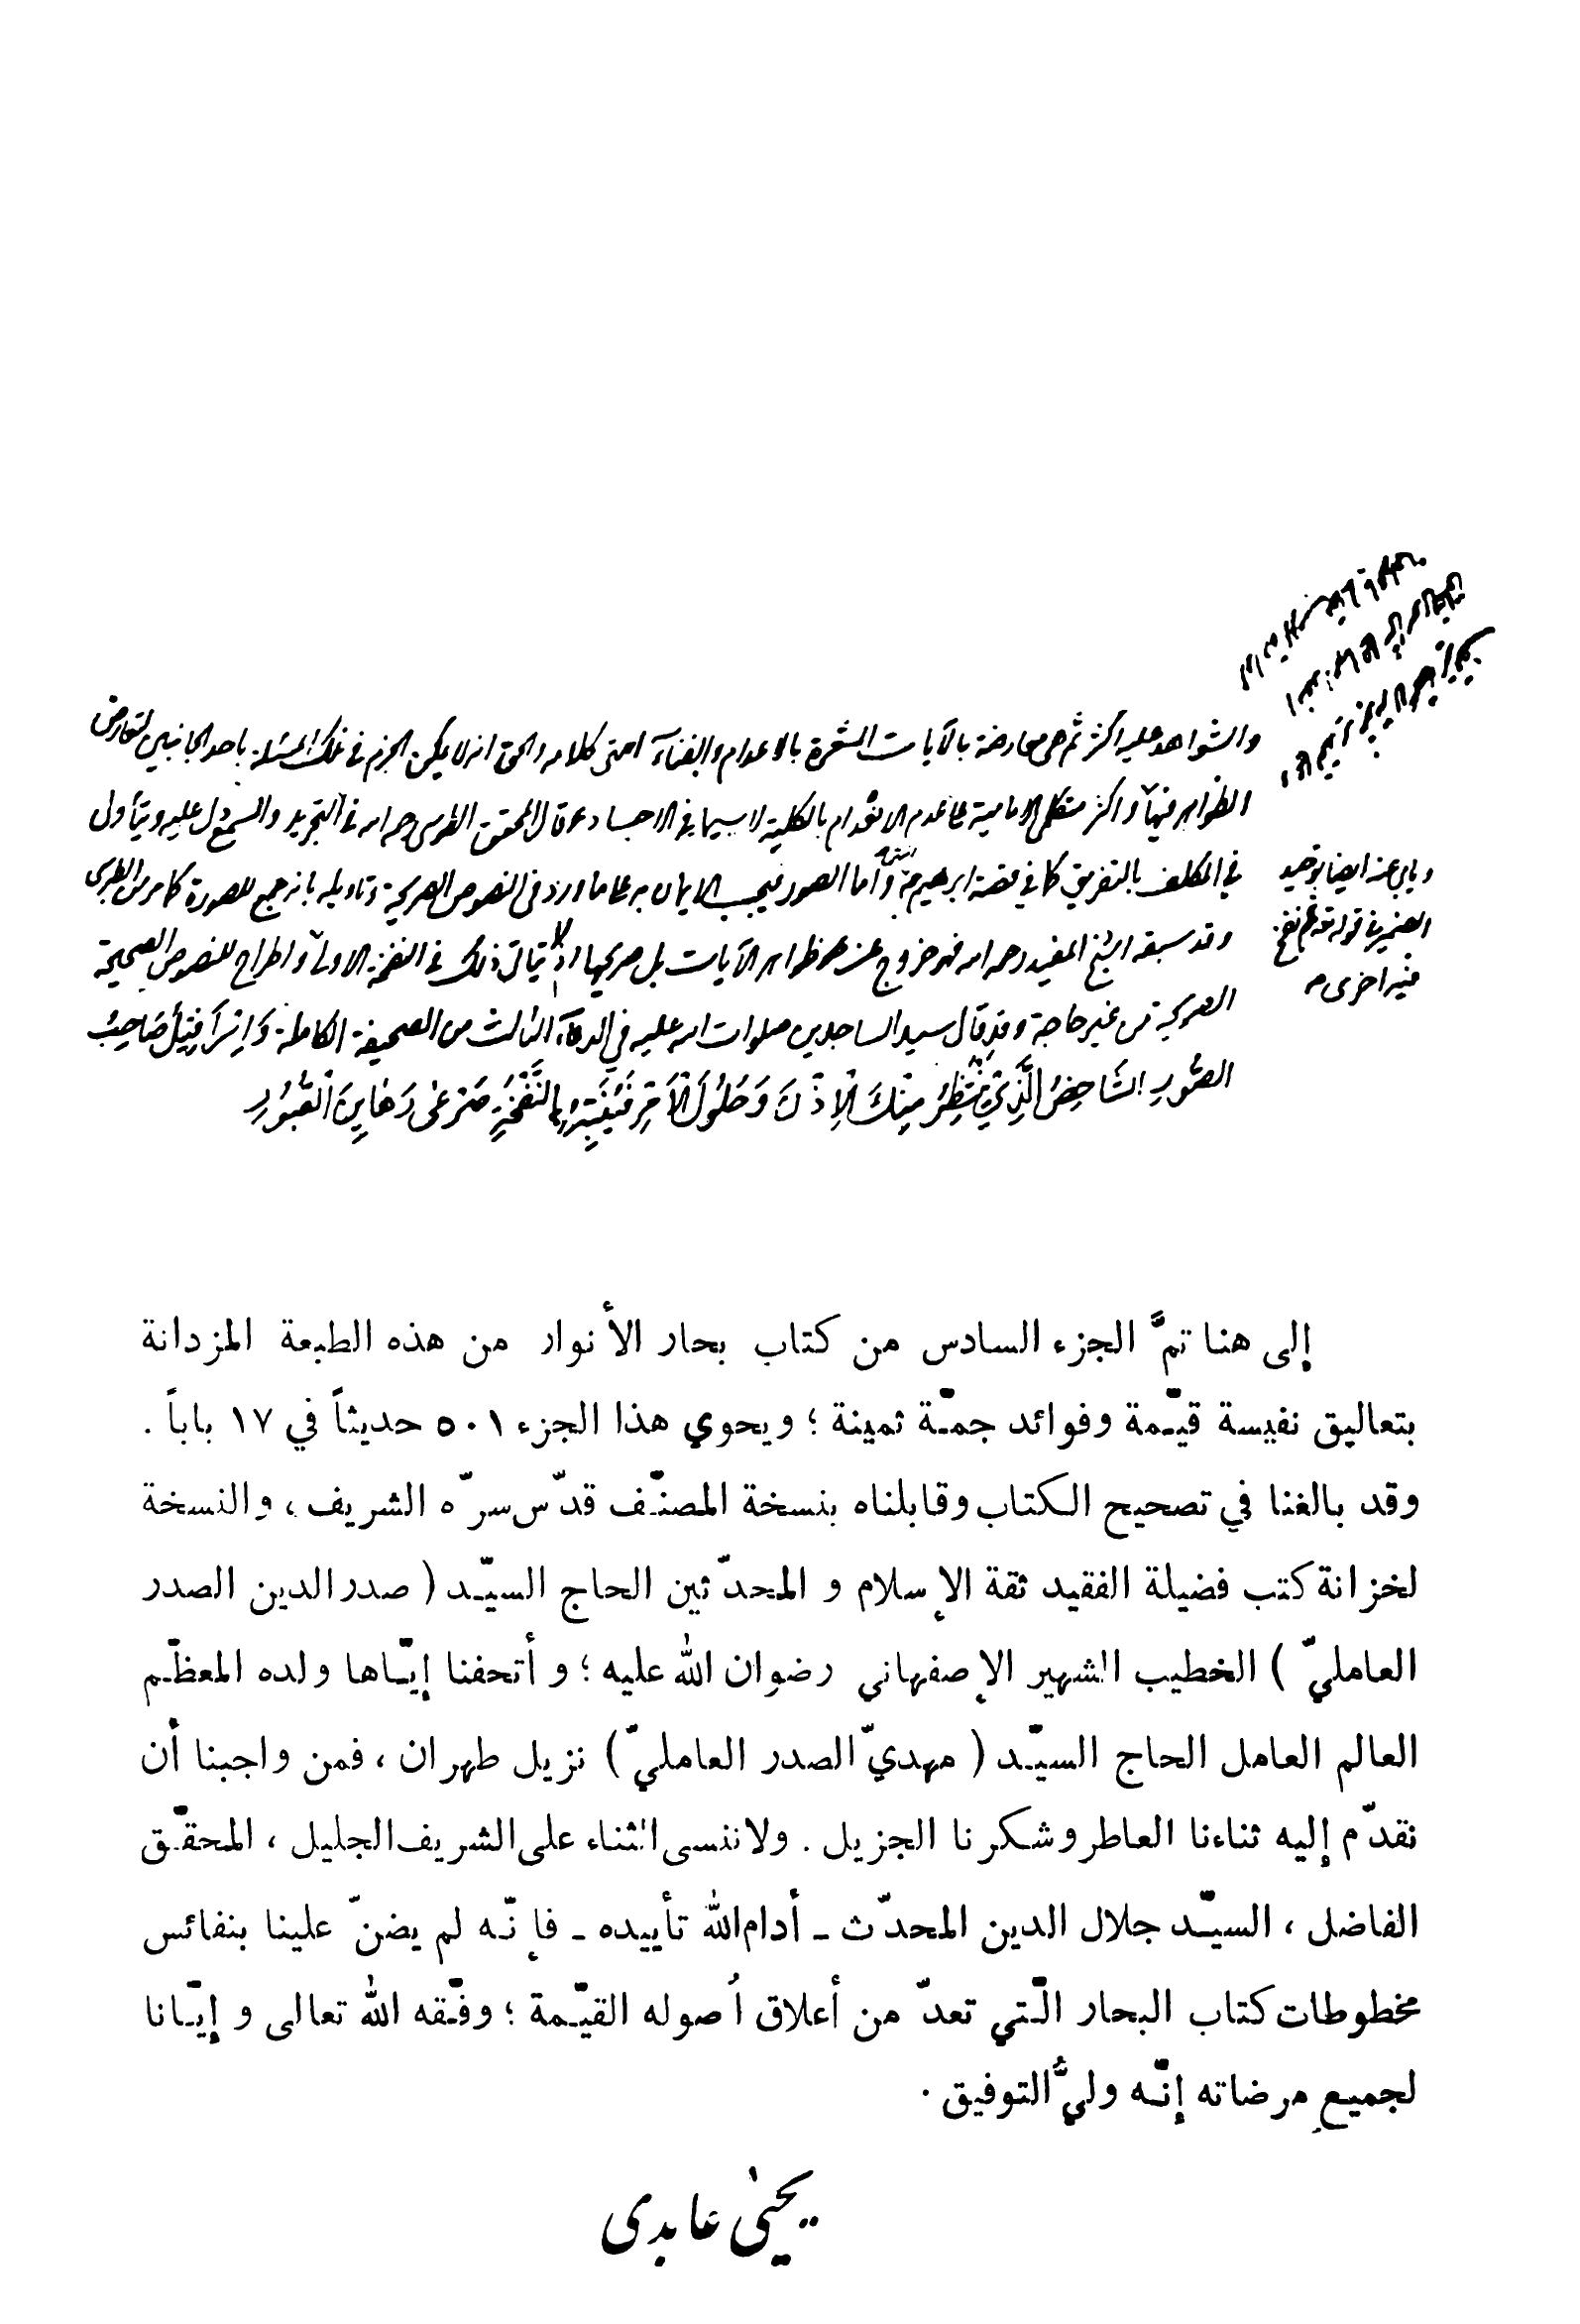 والشواهد عليه اكثر ثم هي معارضة بالآيات المشعرة بالاعدام والفناء انتهى كلامه والحق انه لا يمكن الجزم في تلك المسئلة باحد الجانبين لتعارض
الظواهر فيها واكثر متكلمي الامامية على عدم الانعدام بالكلية لا سيما في الاجساد وقال المحقق الطوسي رحمه الله في التجريد والسمع دل عليه ويتأول
في المكلف بالتفريق كما في قصة ابرهيم واما الصور فيجب الايمان به على ما ورد في النصوص الصريحة وتأويله بانه جمع للصورة كما مر من الطبرسي
وقد سبقه الشيخ المفيد رحمه الله فهو خروج عن ظواهر الآيات بل صريحها اذ لا يتأتى ذلك في النفخة الاولى واطراح للنصوص الصحيحة
الصريحة من غير حاجة وقد قال سيد الساجدين صلوات الله عليه في الدعاء الثالث من الصحيفة الكاملة وَاِسْرَافِيلُ صَاحِبُ
الصُّورِ الشَاخِصُ الَّذِي يَنْتَظِرُ مِنْكَ الْاِذْنَ وَحُلُولَ الْاَمْرِ فَيُنَبِّهُ بِالنَّفْخَةِ صَرْعٰى رَهَايِنِ الْقُبُورِ
ويأبى عنه ايضا توحيد
الضمير في قوله تعه ثم نفخ
فيه اخرى
إلى هنا تمَّ الجزء السادس من كتاب بحار الأنوار من هذه الطبعة المزدانة
بتعاليق نفيسة قيّمة وفوائد جمّة ثمينة ؛ ويحوي هذا الجزء ٥٠١ حديثاً في ١٧ باباً .
وقد بالغنا في تصحيح الكتاب وقابلناه بنسخة المصنّف قدّس سرّه الشريف ، والنسخة
لخزانة كتب فضيلة الفقيد ثقة الإسلام و المحدّثين الحاج السيّد ( صدر الدين الصدر
العامليّ ) الخطيب الشهير الإصفهاني رضوان الله عليه ؛ و أتحفنا إيّاها ولده المعظّم
العالم العامل الحاج السيّد ( مهديّ الصدر العامليّ ) نزيل طهران ، فمن واجبنا أن
نقدّم إليه ثناءنا العاطر وشكرنا الجزيل . ولاننسى الثناء على الشريف الجليل ، المحقّق
الفاضل ، السيّد جلال الدين المحدّث ـ أدام الله تأييده ـ فإنّه لم يضنّ علينا بنفائس
مخطوطات كتاب البحار الّتي تعدّ من أعلاق اُصوله القيّمة ؛ وفّقه الله تعالى و إيّانا
لجميع مرضاته إنّه وليُّ التوفيق .
يحيى عابدى